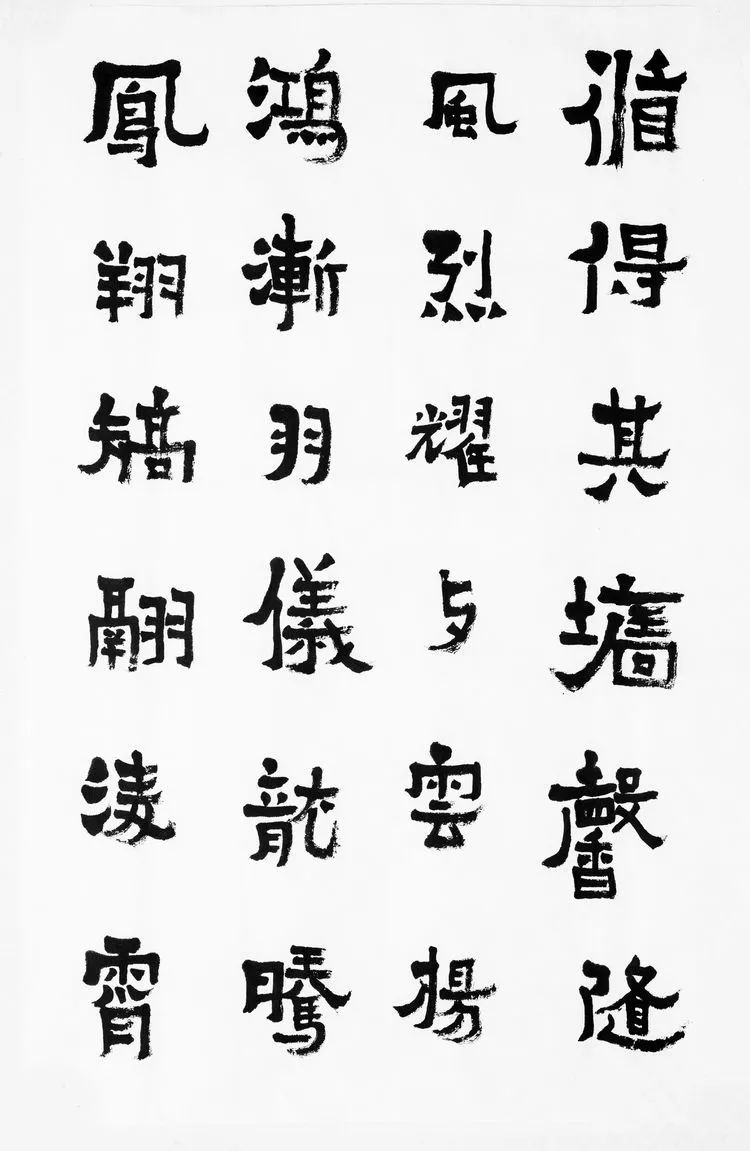 循得其墻馨隨
風烈耀与雲揚
鴻漸羽儀龍騰
鳳翔矯翮淩霄